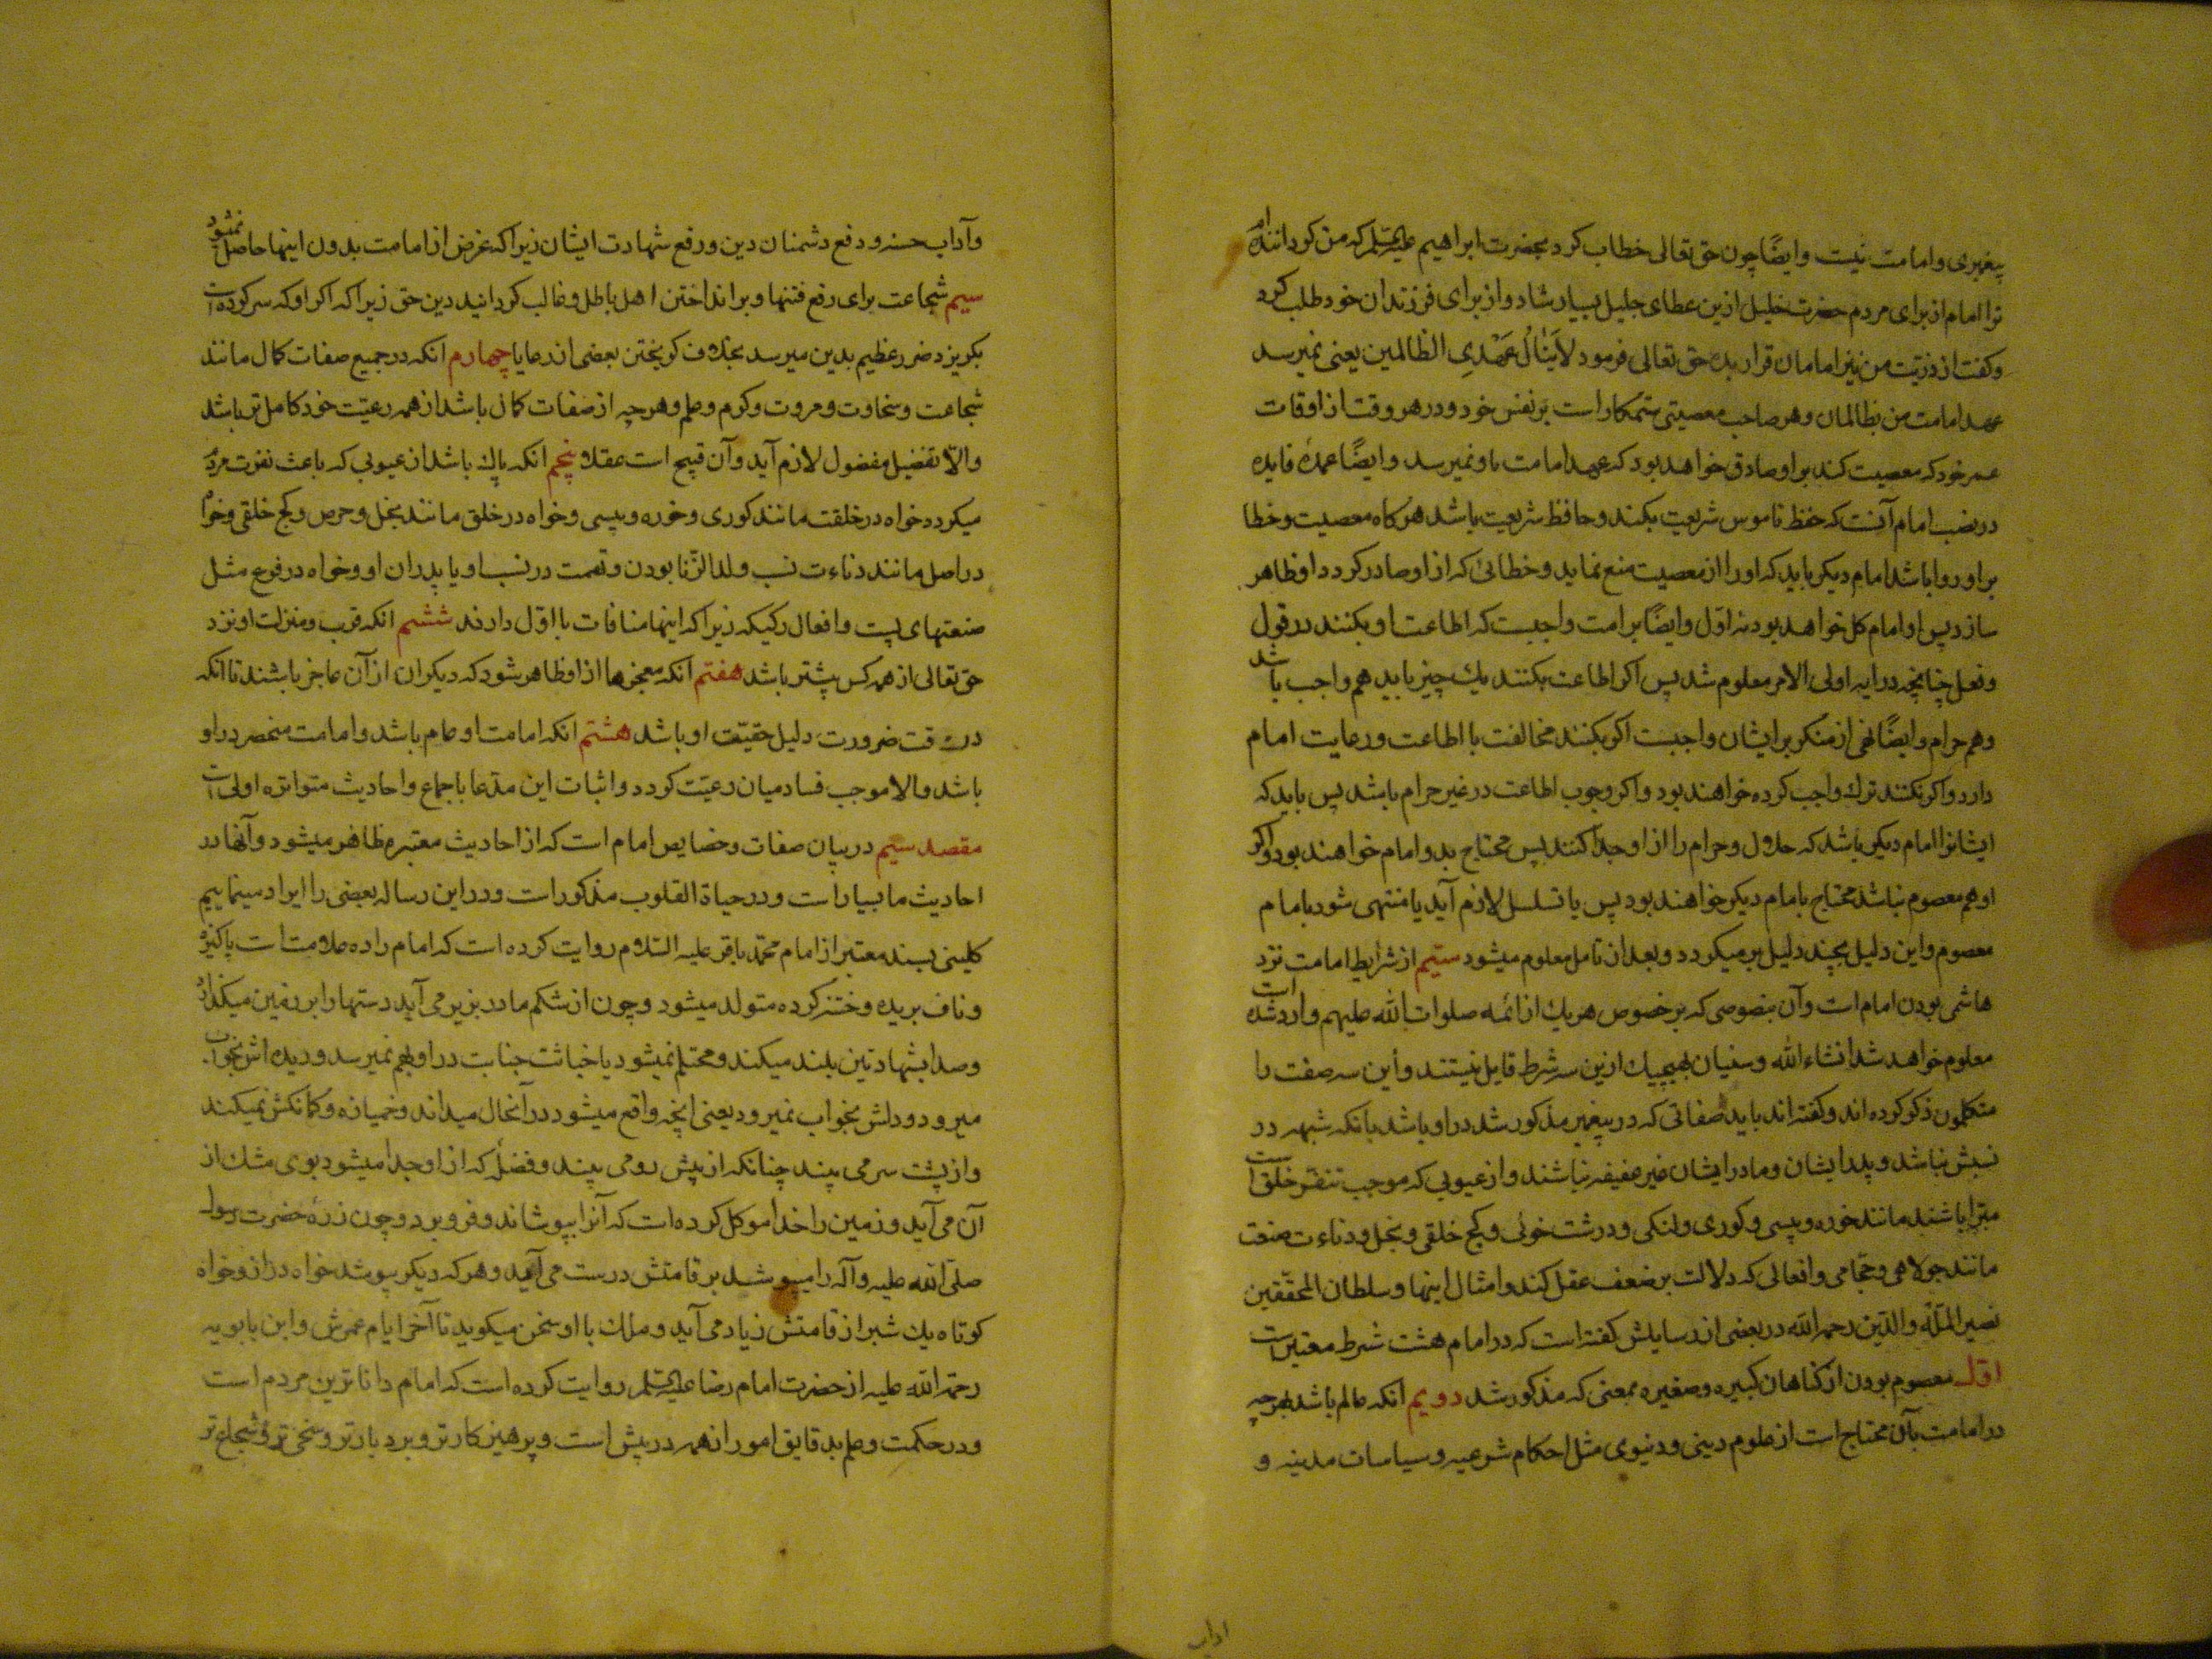 پیغمبری و امامت نیست و ایضًا چون حق تعالی خطاب کرد بحضرت ابراهیم علیه السلم که من کرداننده ام
ترا امام از برای مردم حضرت خلیل ازین عطای جلیل بسیار شاد و از برای فرزندان خود طلب کرد
و کفت از ذریّت من نیز امامان قرار بده حق تعالی فرمود لاَیَنٰالُ عَهْدِی الظالمین یعنی نمیرسد
عهد امامت من بظالمان و هر صاحب معصیتی ستمکار است بر نفس خود و در هر وقت از اوقات
عمر خود که معصیت کند بر او صادق خواهد بود که عهد امامت باو نمیرسد و ایضًا عمدهٔ فایده
در نصب امام آنست که حفظ ناموس شریعت بکند و حافظ شریعت باشد هر کاه معصیت و خطا
بر او روا باشد امام دیکر باید که او را از معصیت منع نماید و خطائی که از او صادر کردد او ظاهر
سازد پس او امام کل خواهد بود نه اوّل و ایضًا بر امت واجبست که اطاعت او بکنند در قول
و فعل چنانچه در ایه اولی الامر معلوم شد پس اکر اطاعت بکنند یك چیز باید هم واجب باشد
و هم حرام و ایضًا نهی از منکر بر ایشان واجبست اکر بکنند مخالفت با اطاعت و رعایت امام
دارد و اکر نکنند ترك واجب کرده خواهند بود و اکر وجوب اطاعت در غیر حرام باشد پس باید که
ایشانرا امام دیکر باشد که حلال و حرام را از او جدا کنند پس محتاج بدو امام خواهند بود و اکر
او هم معصوم نباشد محتاج بامام دیکر خواهند بود پس یا تسلسل لازم آید یا منتهی شود بامام
معصوم و این دلیل بچند دلیل بر میکردد و بعد از تامل معلوم میشود سیّیم از شرایط امامت نزد
هاشمی بودن امام است و آن بنصوصی که بر خصوص هر یك از ائمه صلوات الله علیهم وارد شده است
معلوم خواهد شد انشاء الله و سنیان بهیچیك ازین سه شرط قایل نیستند و این سه صفت را
متکلمون ذکر کرده اند و کفته اند باید صفاتی که در پیغمبر مذکور شد در او باشد بانکه شبهه در
نسبش نباشد و پدر ایشان و مادر ایشان غیر عفیفه نباشند و از عیوبی که موجب تنفّر خلق است
مبّرا باشند مانند خوره و پیسی و کوری و لنکی و درشت خوئی و کج خلقی و بخل و دناءت صنعت
مانند جولاهی و حجّامی و افعالی که دلالت بر ضعف عقل کند و امثال اینها و سلطان المحقّقین
نصیر الملّة والدّین رحمه الله در بعضی از رسایلش کفته است که در امام هشت شرط معتبر است
اوّل معصوم بودن از کناهان کبیره و صغیره بمعنی که مذکور شد دویم انکه عالم باشد بهر چه
در امامت بآن محتاج است از علوم دینی و دنیوی مثل احکام شرعیه و سیاسات مدینه و
اداب
و آداب حسنه و دفع دشمنان دین و رفع شهادت ایشان زیرا که غرض از امامت بدون اینها حاصل نمیشود
سیم شجاعت برای رفع فتنها و بر انداختن اهل باطل و غالب کردانیدن دین حق زیرا که اکر او که سر کرده است
بکریزد ضرر عظیم بدین میرسد بخلاف کریختن بعضی از رعایا چهارم انکه در جمیع صفات کمال مانند
شجاعت و سخاوت و مروت و کرم و علم و هر چه از صفات کمال باشد از همه رعیّت خود کامل تر باشد
و الّا تفضیل مفضول لازم آید و آن قبیح است عقلا پنجم انکه پاك باشد از عیوبی که باعث نفرت مردم
میکردد خواه در خلقت مانند کوری و خوره و پیسی و خواه در خلق مانند بخل و حرص و کج خلقی و خواه
در اصل مانند دناءت نسب و ولد الزّنا بودن و تهمت در نسب او یا پدران او و خواه در فروع مثل
صنعتهای پست و افعال رکیکه زیرا که اینها منافات با اوّل دارند ششم انکه قرب و منزلت او نزد
حق تعالی از همه کس بیشتر باشد هفتم انکه معجزها از او ظاهر شود که دیکران از آن عاجز باشند تا انکه
در وقت ضرورت دلیل حقیّت او باشد هشتم انکه امامت او عام باشد و امامت منحصر در او
باشد و الا موجب فساد میان رعیّت کردد و اثبات این مدّعا باجماع و احادیث متواتره اولی است
مقصد سیم در بیان صفات و خصایص امام است که از احادیث معتبره ظاهر میشود و آنها در
احادیث ما بسیار است و در حیاة القلوب مذکور است و در این رساله بعضی را ایراد مینماییم
کلینی بسند معتبر از امام محمّد باقر علیه السّلام روایت کرده است که امام را ده علامت است پاکیزه
و ناف بریده و ختنه کرده متولد میشود و چون از شکم مادر بزیر می آید دستها را بر زمین میکذارد
و صدا بشهادتین بلند میکند و محتلم نمیشود یا خباثت جنابت در او بهم نمیرسد و دیده اش بخواب
میرود و دلش بخواب نمیرود یعنی انچه واقع میشود در آنحال میداند و خمیازه و کمانکش نمیکند
و از پشت سر می بیند چنانکه از پیش رو می بیند و فضلهٔ که از او جدا میشود بوی مشك از
آن می آید و زمین را خدا موکل کرده است که آنرا بپوشاند و فرو برد و چون زرهٔ حضرت رسول
صلّی الله علیه و آله را میپوشد بر قامتش درست می آید و هر که دیکر بپوشد خواه دراز و خواه
کوتاه یك شبر از قامتش زیاد می آید و ملك با او سخن میکوید تا آخر ایام عمرش و ابن بابویه
رحمة الله علیه از حضرت امام رضا علیه السلم روایت کرده است که امام داناترین مردم است
و در حکمت و علم بدقایق امور از همه در پیش است و پرهیز کار تر و برد بار تر و سخی تر و شجاع تر